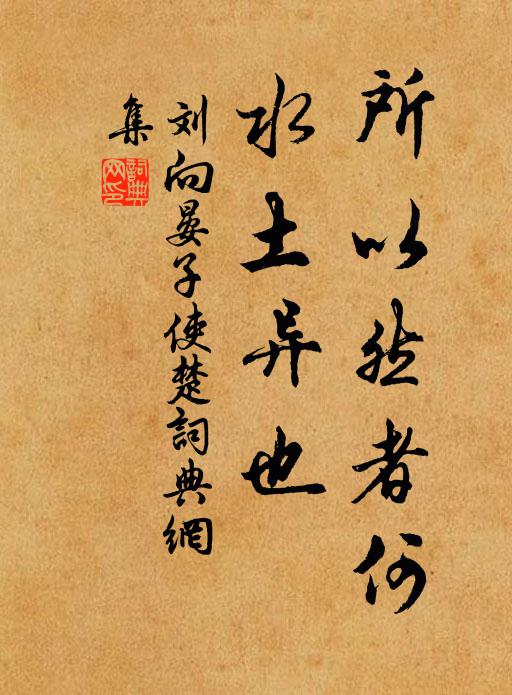 所以然者何
水土异也
刘向晏子使楚詞典網
集
詞典网印